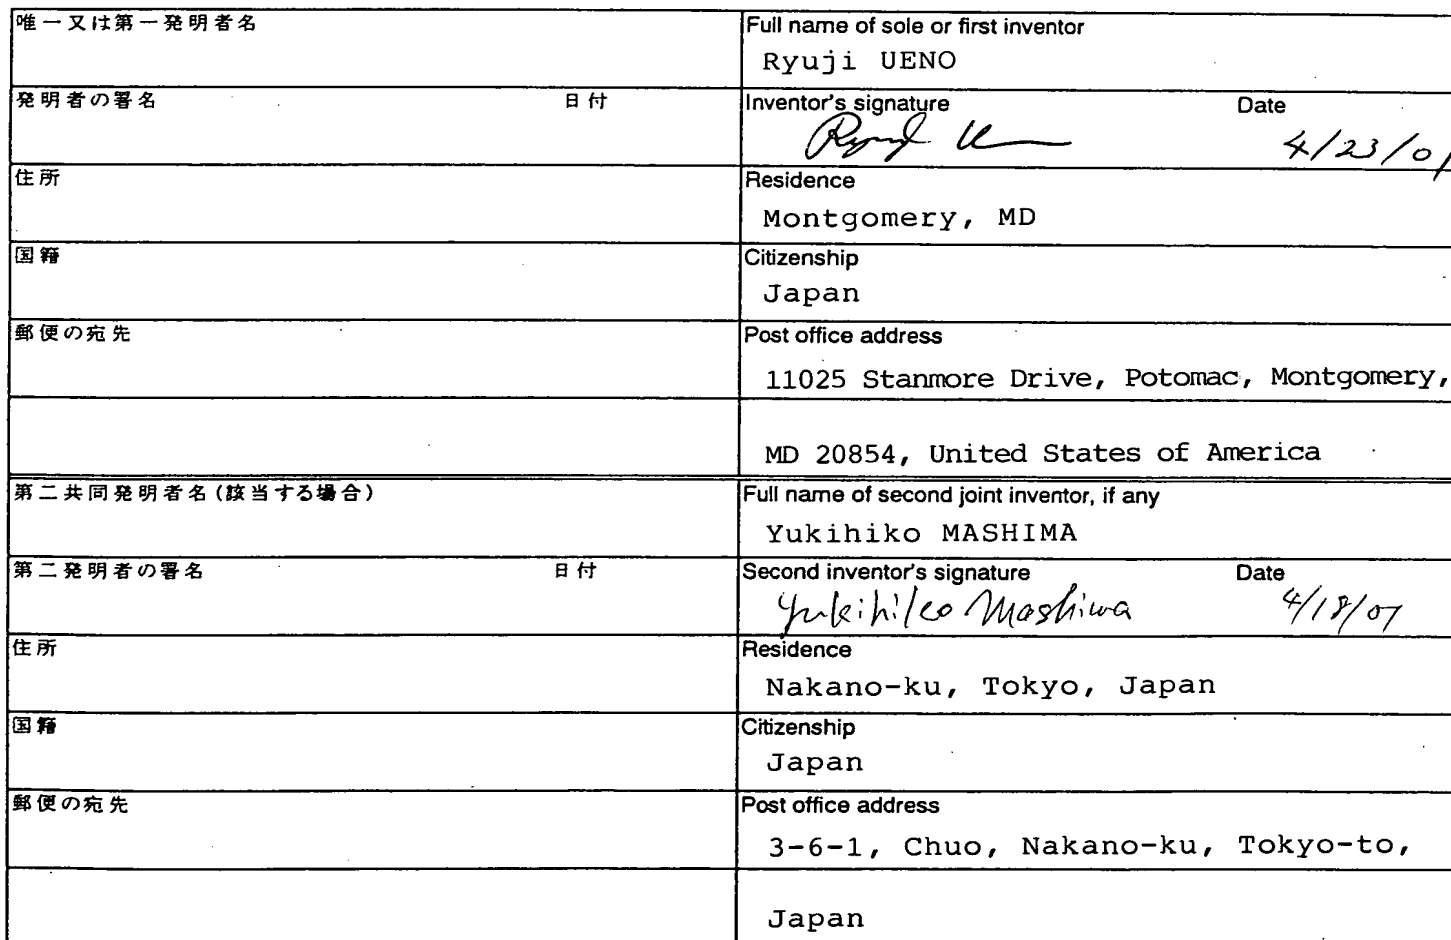 唯一又は第一発明者名
Full name of sole or first inventor
Ryuji UENO
発明者の署名 日付
Inventor's signature Date
4/23/01
住所
Residence
Montgomery, MD
国籍
Citizenship
Japan
郵便の宛先
Post office address
11025 Stanmore Drive, Potomac, Montgomery,
MD 20854, United States of America
第二共同発明者名(該当する場合)
Full name of second joint inventor, if any
Yukihiko MASHIMA
第二発明者の署名 日付
Second inventor's signature Date
Yukihiko Mashima 4/18/01
住所
Residence
Nakano-ku, Tokyo, Japan
国籍
Citizenship
Japan
郵便の宛先
Post office address
3-6-1, Chuo, Nakano-ku, Tokyo-to,
Japan